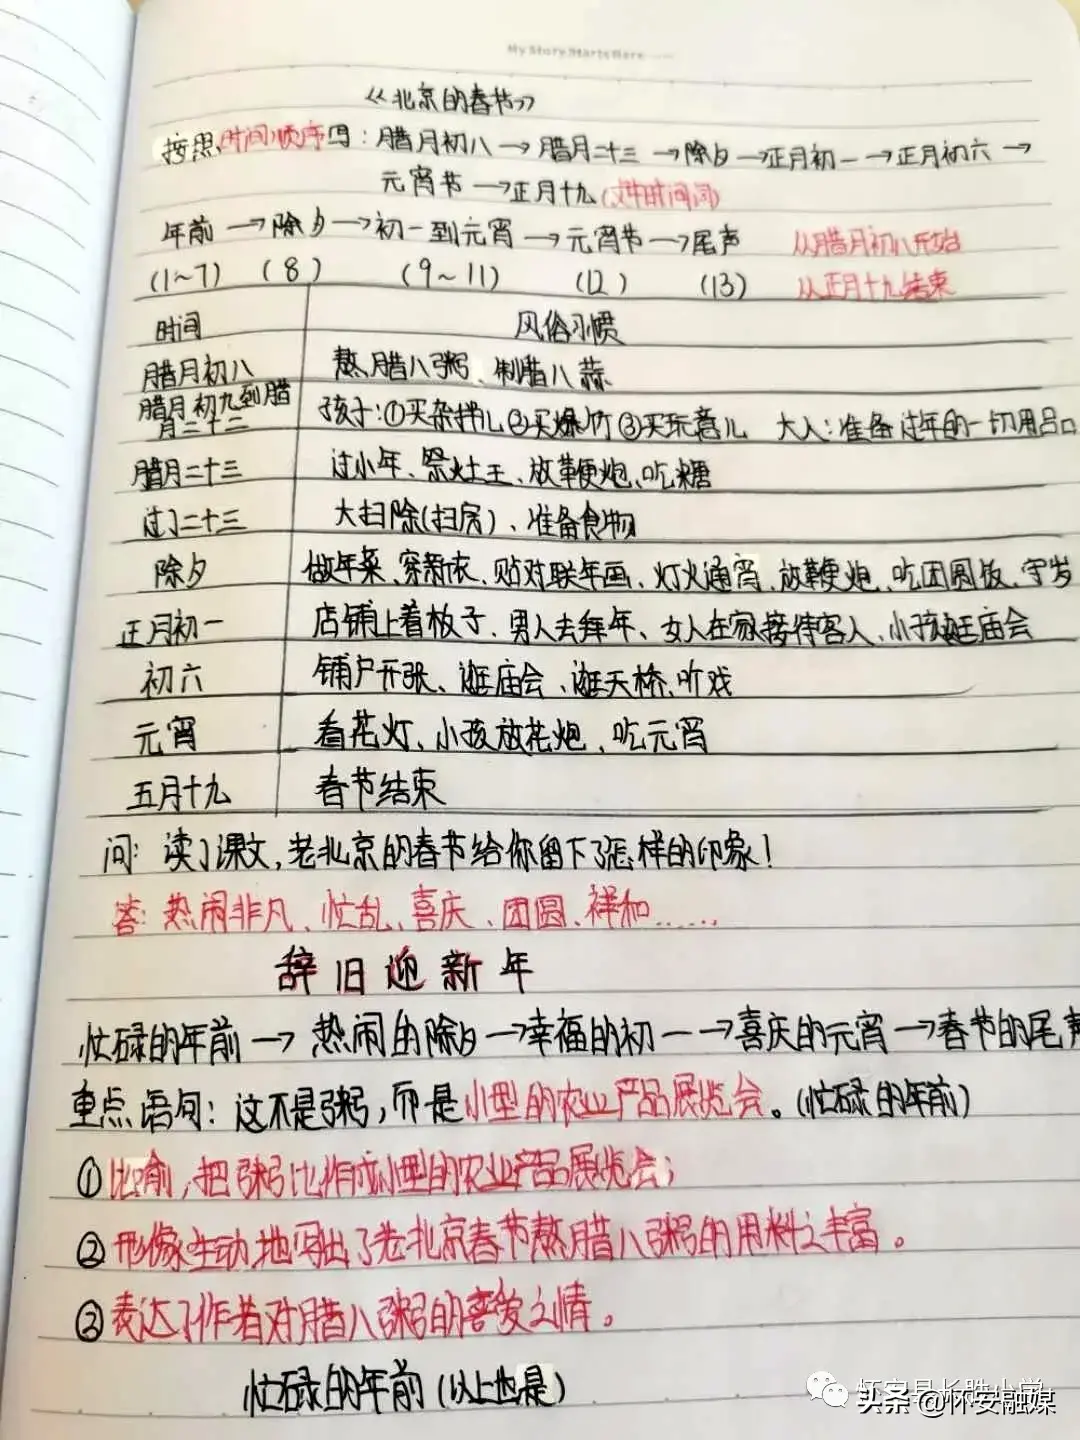 My Story Starts Here
《北京的春节》
按照时间顺序写：腊月初八→腊月二十三→除夕→正月初一→正月初六→
元宵节→正月十九(文中时间词)
年前→除夕→初一到元宵→元宵节→尾声 从腊月初八开始
(1~7) (8) (9~11) (12) (13) 从正月十九结束
时间 风俗习惯
腊月初八 熬腊八粥、制腊八蒜
腊月初九到腊月二十二 孩子：①买杂拌儿②买爆竹③买玩意儿 大人：准备过年的一切用品
腊月二十三 过小年、祭灶王、放鞭炮、吃糖
过了二十三 大扫除(扫房)、准备食物
除夕 做年菜、穿新衣、贴对联年画、灯火通宵、放鞭炮、吃团圆饭、守岁
正月初一 店铺上着板子、男人去拜年、女人在家接待客人、小孩逛庙会
初六 铺户开张、逛庙会、逛天桥、听戏
元宵 看花灯、小孩放花炮、吃元宵
五月十九 春节结束
问：读了课文，老北京的春节给你留下了怎样的印象！
答：热闹非凡、忙乱、喜庆、团圆、祥和……
辞旧迎新年
忙碌的年前→热闹的除夕→幸福的初一→喜庆的元宵→春节的尾声
重点语句：这不是粥，而是小型的农业产品展览会。(忙碌的年前)
①比喻，把粥比作成小型的农业产品展览会；
②形像生动地写出了老北京春节熬腊八粥的用料之丰富。
③表达了作者对腊八粥的喜爱之情。
忙碌的年前(以上也是)
怀安县长胜小学
头条 @怀安融媒